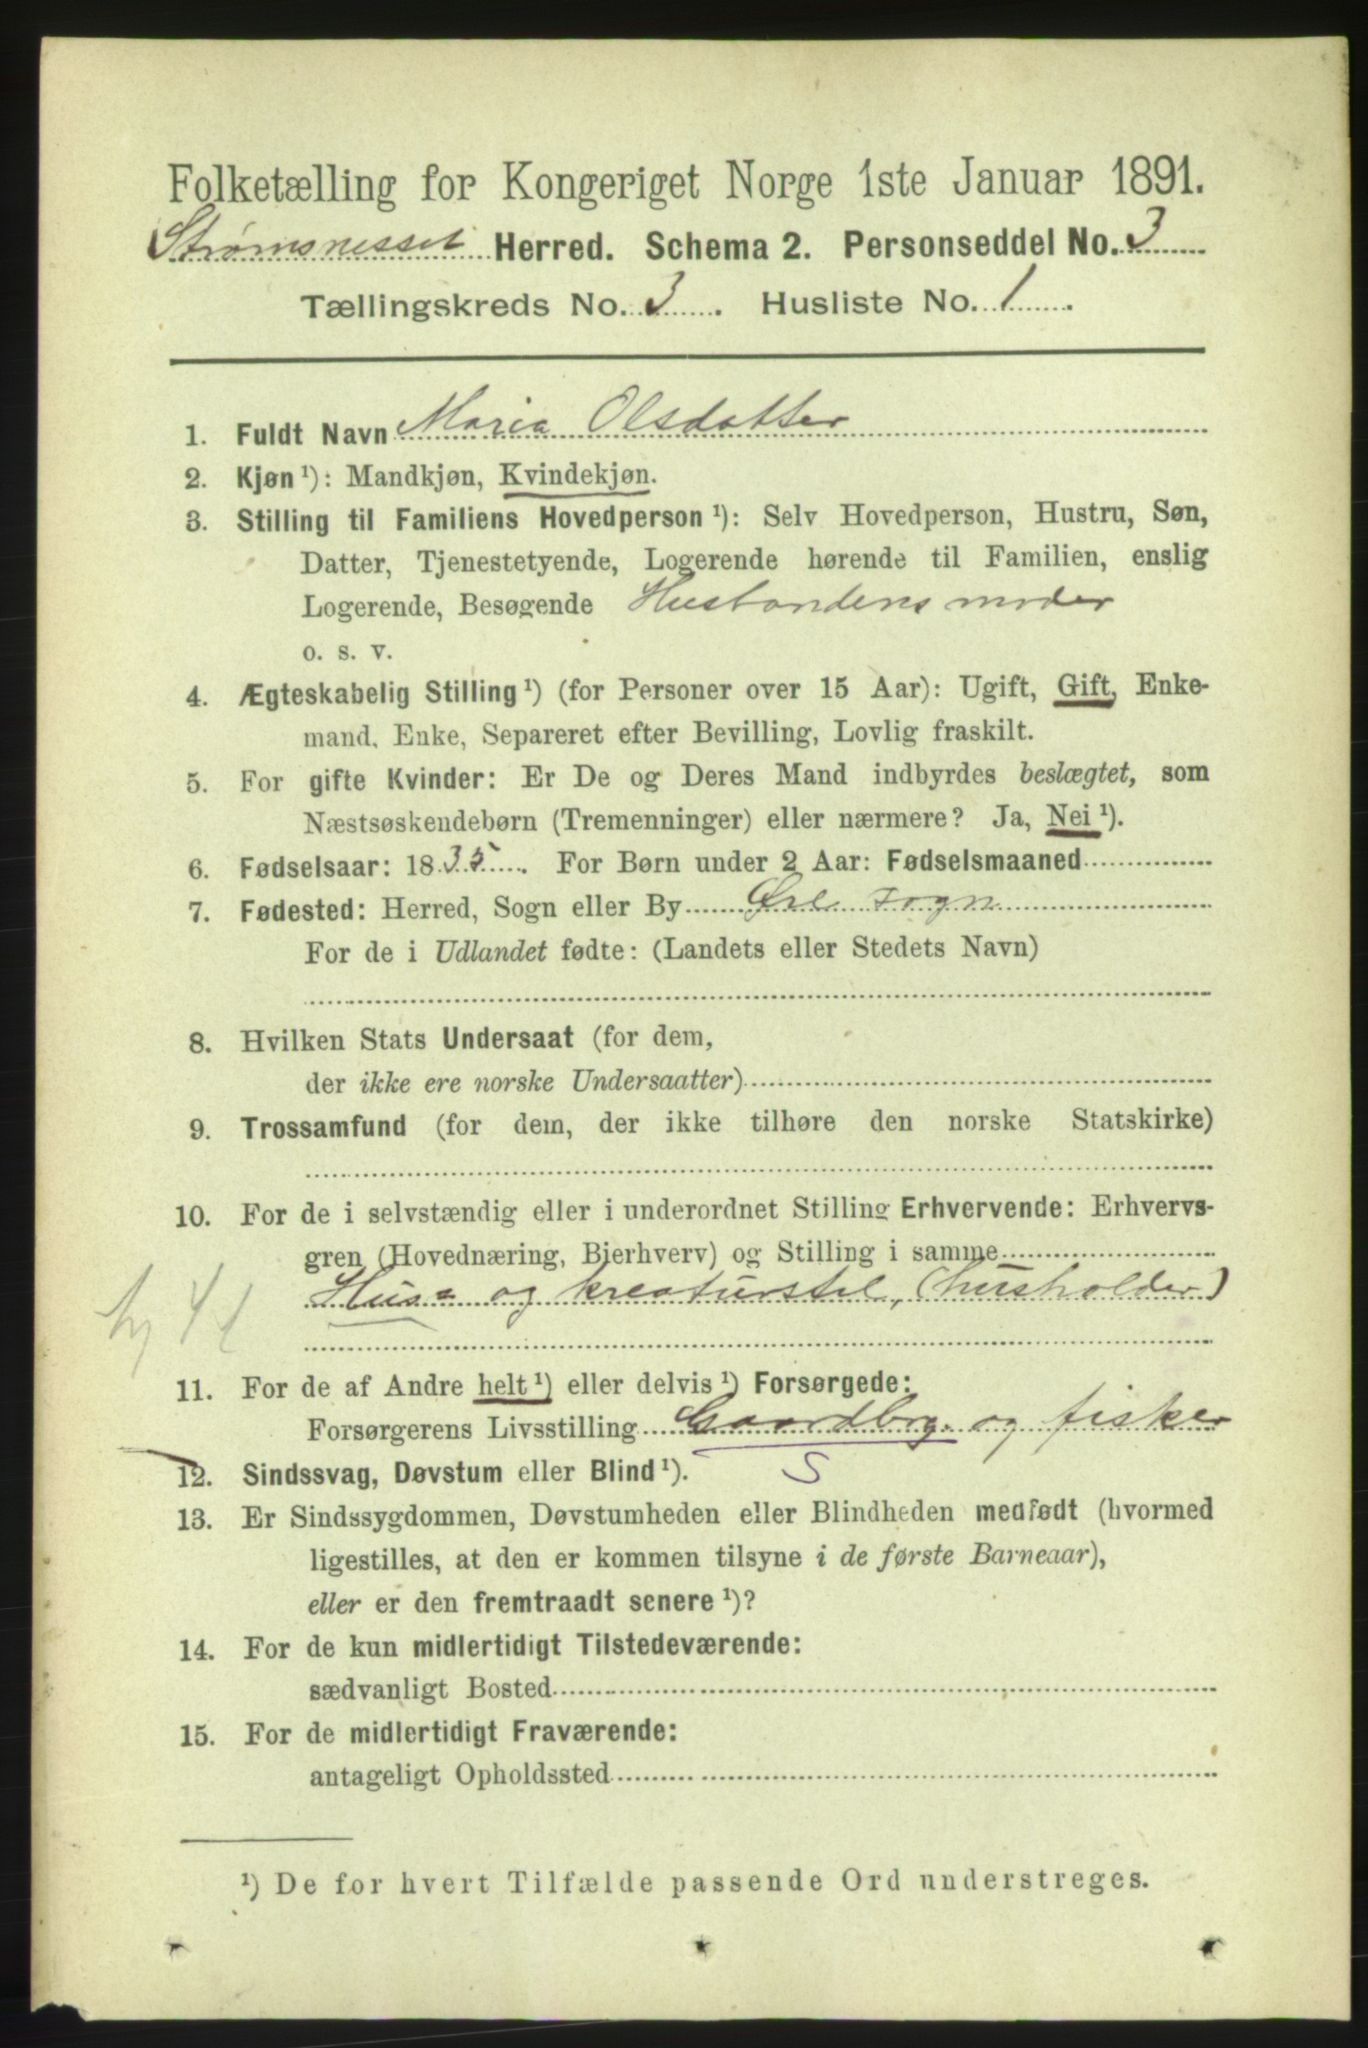 Folketælling for Kongeriget Norge 1ste Januar 1891.
Strømsnesset Herred. Schema 2. Personseddel No. 3
Tællingskreds No. 3. Husliste No. 1.
1. Fuldt Navn Maria Olsdatter
2. Kjøn ¹): Mandkjøn, Kvindekjøn.
3. Stilling til Familiens Hovedperson ¹): Selv Hovedperson, Hustru, Søn,
Datter, Tjenestetyende, Logerende hørende til Familien, enslig
Logerende, Besøgende Husbondens moder
o. s. v.
4. Ægteskabelig Stilling ¹) (for Personer over 15 Aar): Ugift, Gift, Enke-
mand, Enke, Separeret efter Bevilling, Lovlig fraskilt.
5. For gifte Kvinder: Er De og Deres Mand indbyrdes beslægtet, som
Næstsøskendebørn (Tremenninger) eller nærmere? Ja, Nei ¹).
6. Fødselsaar: 1835. For Børn under 2 Aar: Fødselsmaaned
7. Fødested: Herred, Sogn eller By Øre sogn
For de i Udlandet fødte: (Landets eller Stedets Navn)
8. Hvilken Stats Undersaat (for dem,
der ikke ere norske Undersaatter)
9. Trossamfund (for dem, der ikke tilhøre den norske Statskirke)
10. For de i selvstændig eller i underordnet Stilling Erhvervende: Erhvervs-
gren (Hovednæring, Bierhverv) og Stilling i samme
Hus= og kreaturstel, (husholder)
11. For de af Andre helt ¹) eller delvis ¹) Forsørgede:
Forsørgerens Livsstilling Gaardbrg. og fisker
S
12. Sindssvag, Døvstum eller Blind ¹).
13. Er Sindssygdommen, Døvstumheden eller Blindheden medfødt (hvormed
ligestilles, at den er kommen tilsyne i de første Barneaar),
eller er den fremtraadt senere ¹)?
14. For de kun midlertidigt Tilstedeværende:
sædvanligt Bosted
15. For de midlertidigt Fraværende:
antageligt Opholdssted
¹) De for hvert Tilfælde passende Ord understreges.